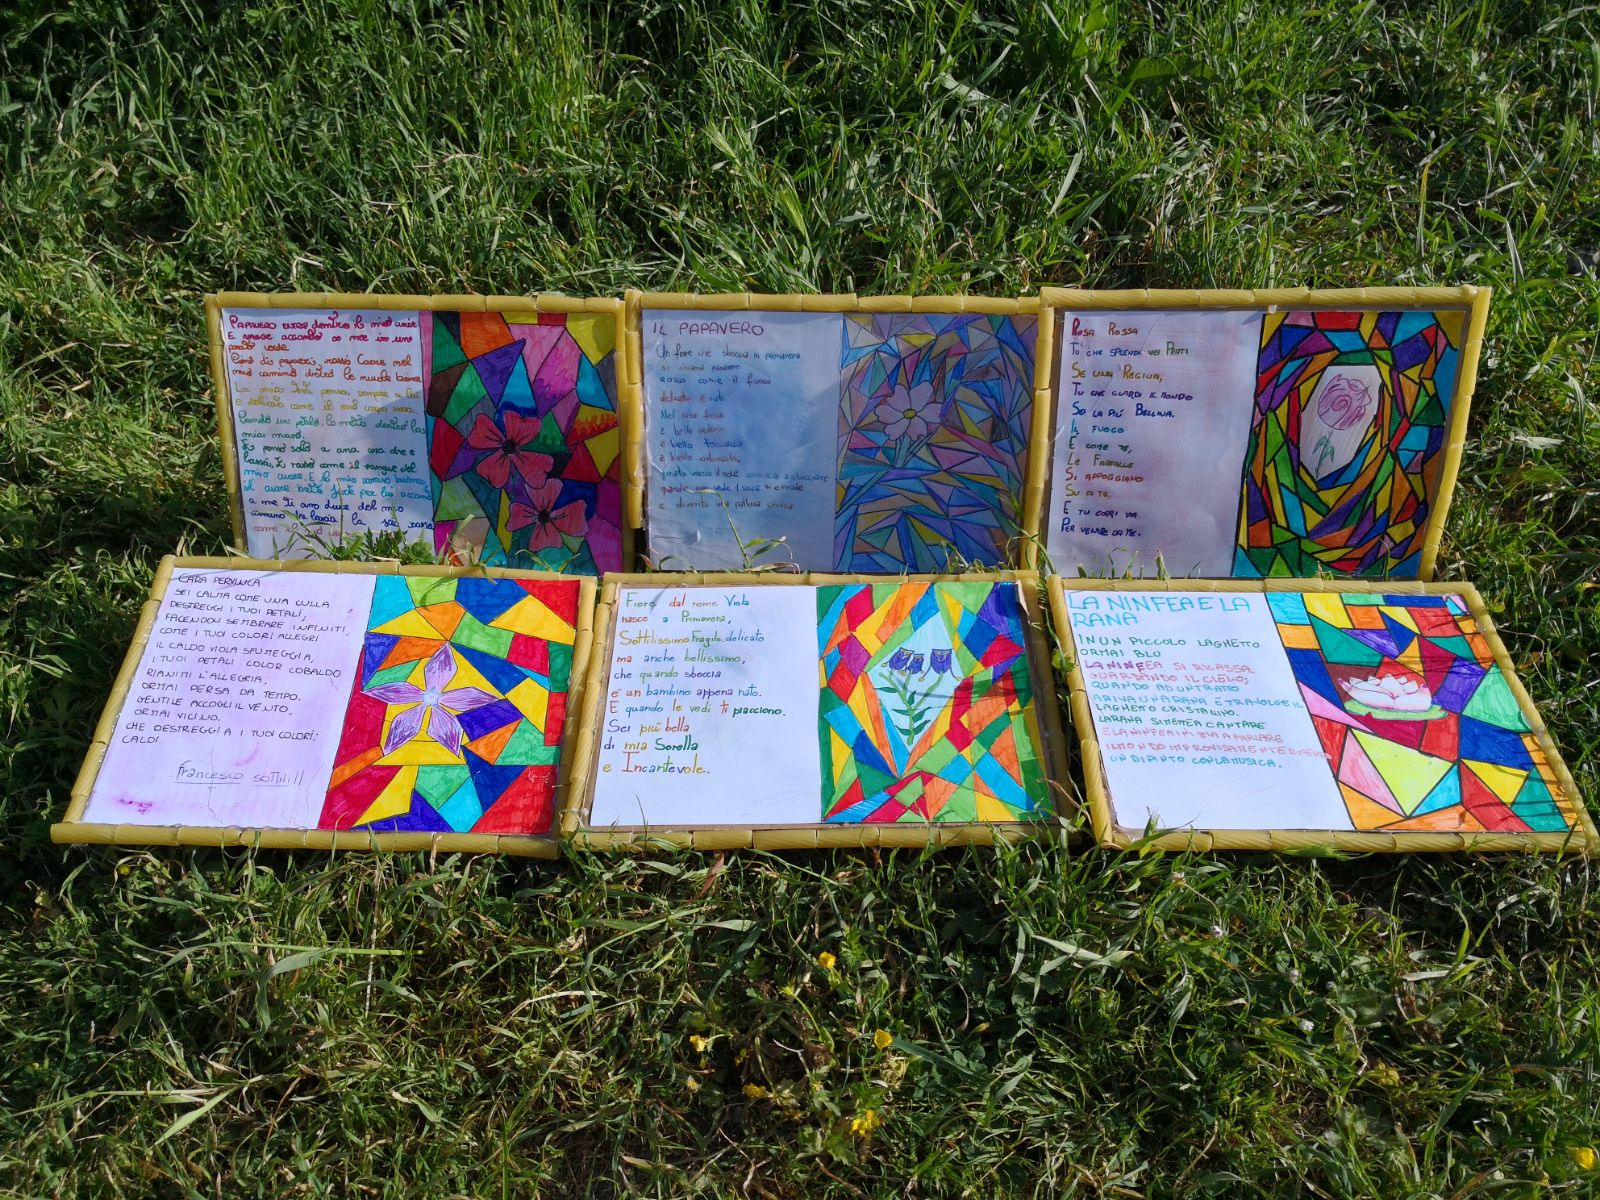 PAPAVERO entra dentro il mio cuore
E nasce accanto a me in un
prato verde
mio cammino dietro le nuvole
La mia testa pensa sempre a lui
e delicato come il mio corpo
Quando un petalo lo metto dentro la
mia mano.
Io penso solo a una cosa che è
rosso come il sangue del
mio cuore. E il mio
il cuore batte forte per lui accanto
a me
la sua
come il
IL PAPAVERO
Un fiore che sboccia in primavera
si chiama papavero
rosso come il fuoco
delicato e
Nel
è bello vederlo
è bello toccarlo
è bello coloratarlo.
il sole comincia a sbocciare
quando non vede il sole si chiude
e diventa una pallina chiusa
ROSA ROSSA
TU CHE SPLENDI NEI PRATI
SEI UNA REGINA,
TU CHE GUARDI IL MONDO
SEI LA PIÚ BELLINA.
IL FUOCO
È COME TE,
LE FARFALLE
SI APPOGGIANO
SU DI TE,
E TU CORRI VIA
PER VENIRE DA ME.
CARA PERVINCA
SEI CALMA COME UNA CULLA
DESTREGGI I TUOI PETALI,
FACENDOLI SEMBRARE INFINITI,
COME I TUOI COLORI ALLEGRI
IL CALDO VIOLA SFUMEGGIA,
I TUOI PETALI COLOR COBALDO
RIANIMI L'ALLEGRIA,
ORMAI PERSA DA TEMPO.
GENTILE ACCOGLI IL VENTO,
ORMAI VICINO.
CHE DESTREGGIA I TUOI COLORI;
CALDI.
francesco
Fiore dal nome Viola
nasce a Primavera,
Sottilissimo, Fragile, delicato
ma anche bellissimo,
che quando sboccia
e' un bambino appena nato.
E quando le vedi ti piacciono.
Sei più bella
di mia Sorella
e Incantevole.
LA NINFEA E LA
RANA
IN UN PICCOLO LAGHETTO
ORMAI BLU
LA NINFEA SI RILASSA,
GUARDANDO IL CIELO,
QUANDO AD UN TRATO
ARIVA UNA RANA E TRAVOLGE IL
LAGHETO CRISTALINO.
LA RANA SI METE A CANTARE
E LA NINFEA INIZIA A PARLARE
IL MONDO IMPROVISAMENTE
UN DIPINTO CON LA MUSICA.